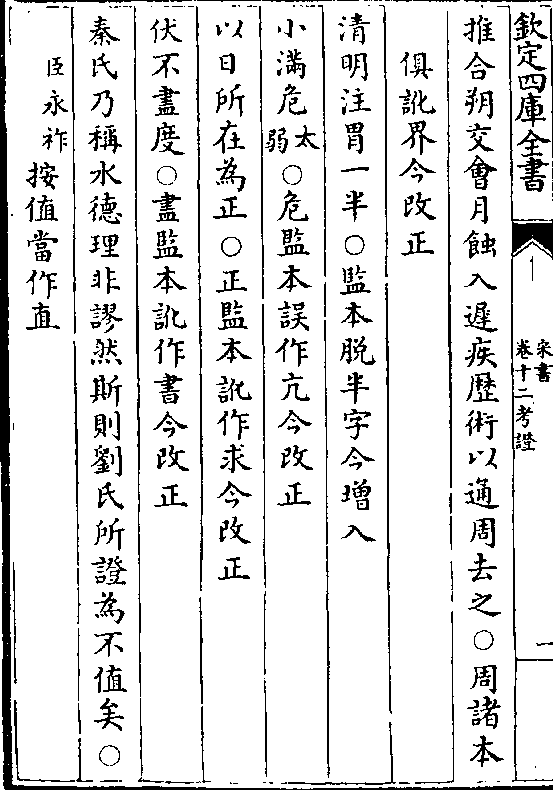 欽定四庫全書
宋書
卷十二考證
一
推合朔交會月蝕入遲疾歷術以通周去之○周諸本
俱訛界今改正
清明注胃一半○監本脱半字今增入
小滿危太弱○危監本誤作亢今改正
以日所在為正○正監本訛作求今改正
伏不盡度○盡監本訛作書今改正
秦氏乃稱水德理非謬然斯則劉氏所證為不值矣○
臣永祚按值當作直